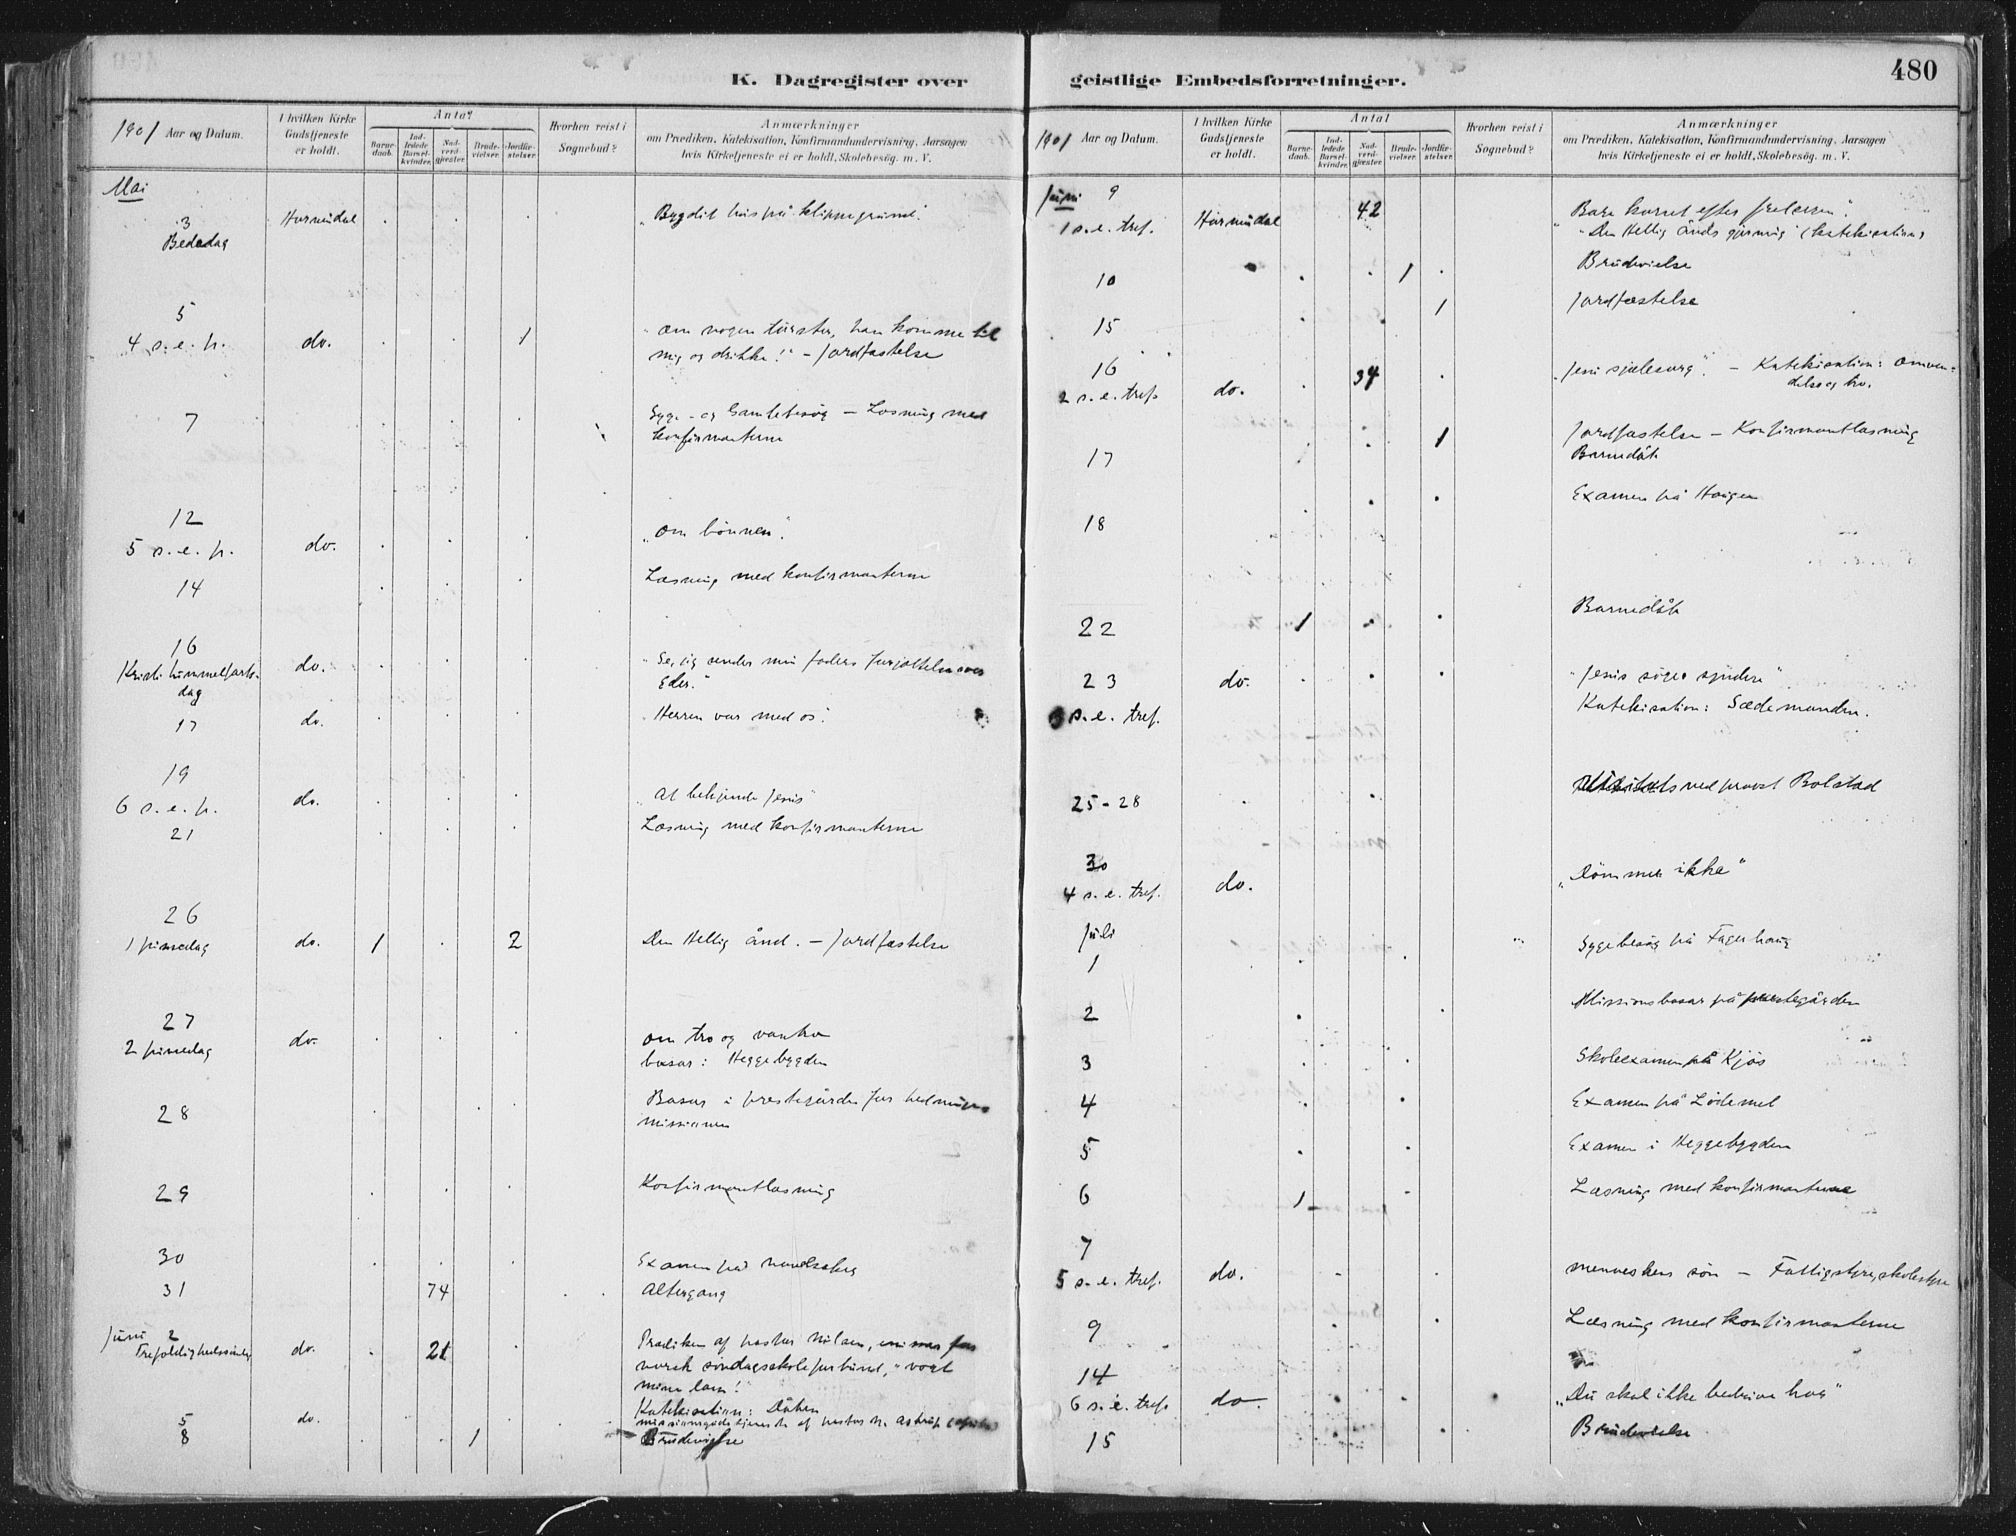 K. Dagregister over
1901 Aar og Datum.
I hvilken Kirke Gudstjeneste er holdt.
Antal
Barne-daab.
Ind-ledede Barsel-kvinder.
Nad-verd-gjæster.
Brude-vielser.
Jordfæ-stelser.
Hvorhen reist i Sognebud?
Anmærkninger
om Prædiken, Katekisation, Konfirmandundervisning, Aarsagen
hvis Kirketjeneste ei er holdt, Skolebesög. m. V.
Mai
3 Bededag Hornindal „Bygdit hus på klippegrund".
5
4 s.e. p. do. 1 „om nogen tørster, han komme til
mig og drikke!" – Jordfæstelse
7 Syge- og Gamlebesøg – Læsning med
konfirmanterne
12
5 s.e. p. do. „om bønnen".
14 Læsning med konfirmanterne
16
Kristi himmelfarts-dag do. „Se, jeg sender min faders forjættelse over
Eder."
17 do. „Herren var med os".
19
6 s.e. p. do. „At bekjende Jesus"
21 Læsning med konfirmanterne
26
1 pinsedag do. 1 2 Den Hellig ånd. – Jordfæstelse
27
2 pinsedag do. om tro og vantro
basar i Heggebygden
28 Basar i prestegården for hednings
missionen
29 Konfirmantlæsning
30 Examen på
31 74 Altergang
Juni 2
Trefoldighedssøndag do. 21 Prædiken af pastor
norsk søndagsskoleforbund, „vogt
mine lam!"
Katekisation: Dåben
5 do. missionsgudstjeneste af pastor N. Astrup
8 1 Brudevielse
geistlige Embedsforretninger.
480
1901 Aar og Datum.
I hvilken Kirke Gudstjeneste er holdt.
Antal
Barne-daab.
Ind-ledede Barsel-kvinder.
Nad-verd-gjæster.
Brude-vielser.
Jordfæ-stelser.
Hvorhen reist i Sognebud?
Anmærkninger
om Prædiken, Katekisation, Konfirmandundervisning, Aarsagen
hvis Kirketjeneste ei er holdt, Skolebesög. m. V.
Juni 9
1 s.e. tref. Hornindal 42 Bare korset efter frelseren".
„Den Hellig Ånds gjerning (katekisation)
10 1 Brudevielse
15 1 Jordfæstelse
16
2 s.e. tref. do. 34 „Jesu sjælesorg". – Katekisation: omven-
delse og tro.
17 1 Jordfæstelse – Konfirmantlæsning
Barnedåb
18 Examen på Haugen
22 1 Barnedåb
23 do. „Jesus søger syndere"
3 s.e. tref. Katekisation: Sædemanden.
25-28 ved provst Bolstad
30
4 s.e. tref. do. „Dømmer ikke"
Juli
1 Sygebesøg på Fagerhaug
2 Missionsbasar på prestegården
3 Skoleexamen på Kjøs
4 Examen på Lødemel
5 Examen i Heggebygden
6 1 Læsning med konfirmanterne
7
5 s.e. tref. do. menneskens søn – Fattigstyre, skolestyre
9 Læsning med konfirmanterne
14
6 s.e. tref. do. „Du skal ikke bedrive hor"
15 Brudevielse